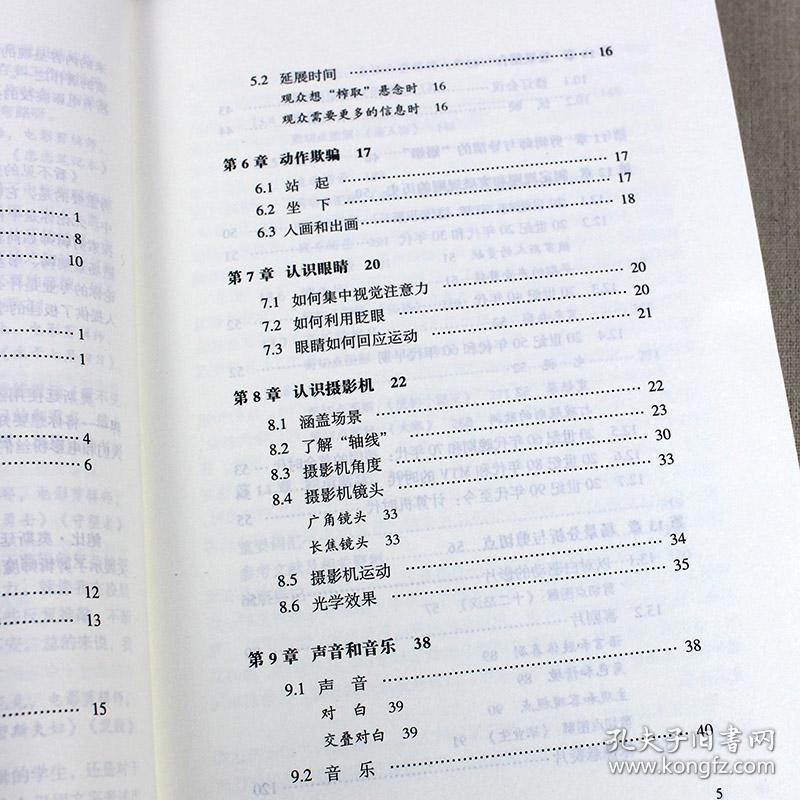 1
8
10
1
1
4
6
12
13
15
5.2 延展时间 16
观众想“榨取”悬念时 16
观众需要更多的信息时 16
第6章 动作欺骗 17
6.1 站 起 17
6.2 坐 下 17
6.3 入画和出画 18
第7章 认识眼睛 20
7.1 如何集中视觉注意力 20
7.2 如何利用眨眼 20
7.3 眼睛如何回应运动 21
第8章 认识摄影机 22
8.1 涵盖场景 22
8.2 了解“轴线” 23
8.3 摄影机角度 30
8.4 摄影机镜头 33
广角镜头 33
长焦镜头 33
8.5 摄影机运动 34
8.6 光学效果 35
第9章 声音和音乐 38
9.1 声 音 38
对 白 39
交叠对白 39
9.2 音 乐 40
5
孔夫子旧书网
www.kongfz.com